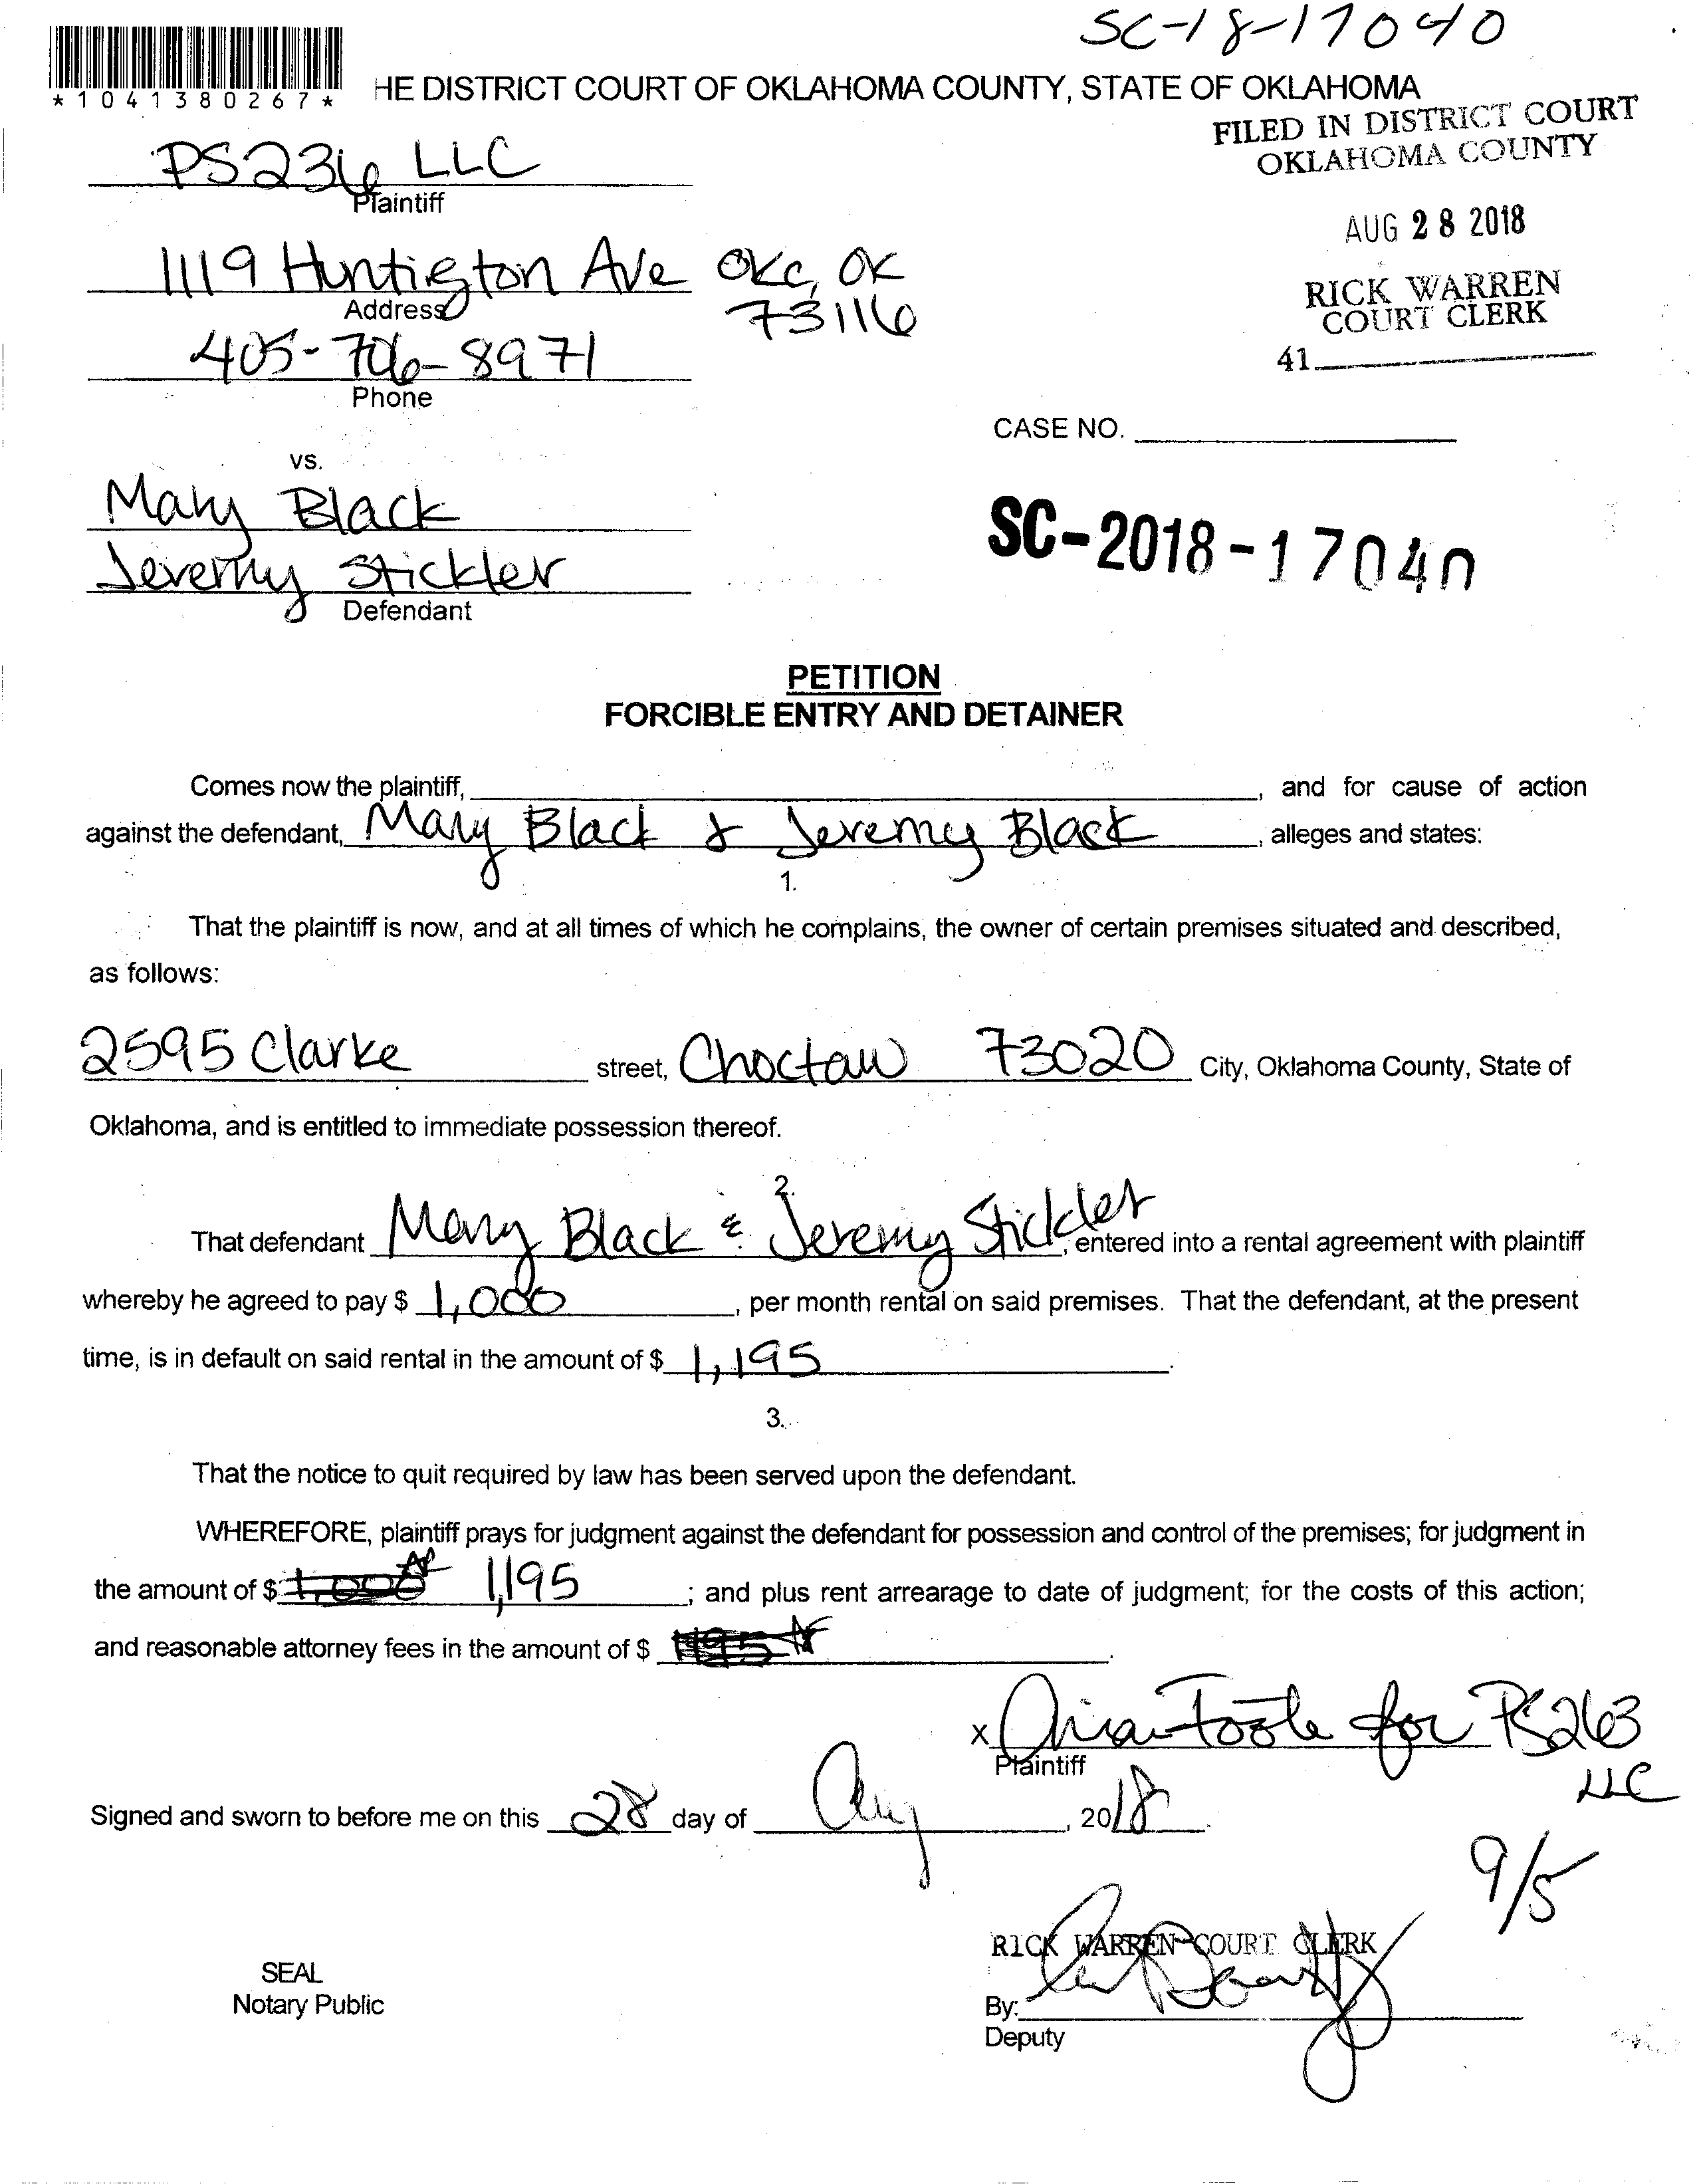 SC-18-17040
*1041380267*
HE DISTRICT COURT OF OKLAHOMA COUNTY, STATE OF OKLAHOMA
FILED IN DISTRICT COURT
OKLAHOMA COUNTY
PS236 LLC
Plaintiff
AUG 28 2018
1119 Huntington Ave OKC, OK
73116
Address
RICK WARREN
COURT CLERK
405-706-8971
41
Phone
CASE NO.
vs.
Mary Black
SC-2018-17040
Jeremy Stickler
Defendant
PETITION
FORCIBLE ENTRY AND DETAINER
Comes now the plaintiff, , and for cause of action
against the defendant, Mary Black & Jeremy Black, alleges and states:
1.
That the plaintiff is now, and at all times of which he complains, the owner of certain premises situated and described,
as follows:
2595 Clarke street, Choctaw 73020 City, Oklahoma County, State of
Oklahoma, and is entitled to immediate possession thereof.
2.
That defendant Mary Black & Jeremy Stickler, entered into a rental agreement with plaintiff
whereby he agreed to pay $ 1,000, per month rental on said premises. That the defendant, at the present
time, is in default on said rental in the amount of $ 1,195.
3.
That the notice to quit required by law has been served upon the defendant.
WHEREFORE, plaintiff prays for judgment against the defendant for possession and control of the premises; for judgment in
the amount of $ 1,000 1,195; and plus rent arrearage to date of judgment; for the costs of this action;
and reasonable attorney fees in the amount of $ 1195.
x Foote for PS263
LLC
Plaintiff
Signed and sworn to before me on this 28 day of Aug, 2018.
9/5
RICK WARREN COURT CLERK
SEAL
Notary Public
By:
Deputy